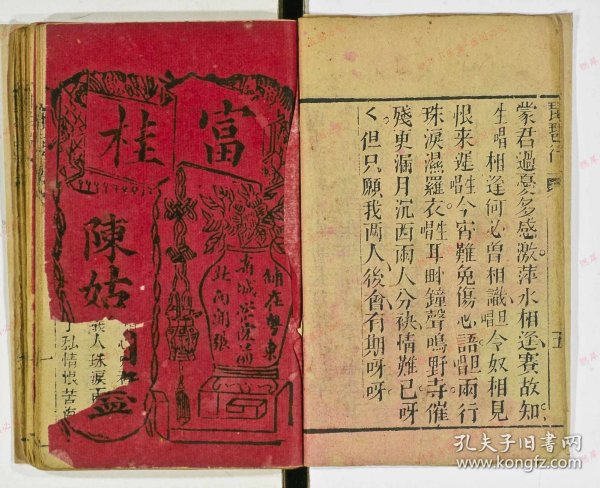 琵琶行
五
蒙君過憂多感激萍水相逢賽故知
生唱相逢何必曾相識旦唱今奴相見
恨来遲生唱今宵難免傷心語旦唱兩行
珠淚濕羅衣生唱耳畔鐘聲鳴野寺催
殘更漏月沉西兩人分袂情難已呀
々但只願我两人後會有期呀呀
富桂
陳姑
舖在粤東
省城
北向開張
人珠淚
情恨苦
孔夫子旧书网
www.kongfz.com